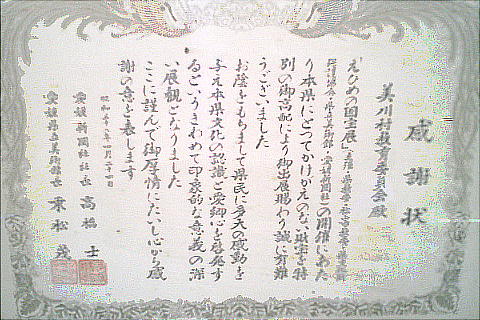 感謝状
美川村教育委員会殿
えひめの国宝展
の開催にあた
り本県にとってかけがえのない財宝を特
別の御高配により御出展賜わり誠に有難
うございました
お陰をもちまして県民に多大の感動を
与え本県文化の認識と愛郷心を啓発す
るというきわめて印象的な意義の深
い展観となりました
ここに謹んで御厚情にたいし心から感
謝の意を表します
昭和 年四月二十四日
愛媛新聞社社長 高橋 士
愛媛県立美術館長 末松 茂